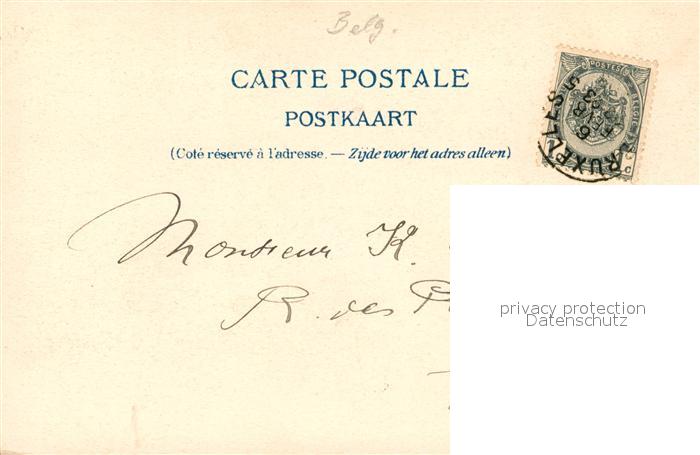 Belg.
CARTE POSTALE
POSTKAART
(Coté réservé à l'adresse. — Zijde voor het adres alleen)
POSTES
BRUXELLES 5
Monsieur K.
R. des
privacy protection
Datenschutz